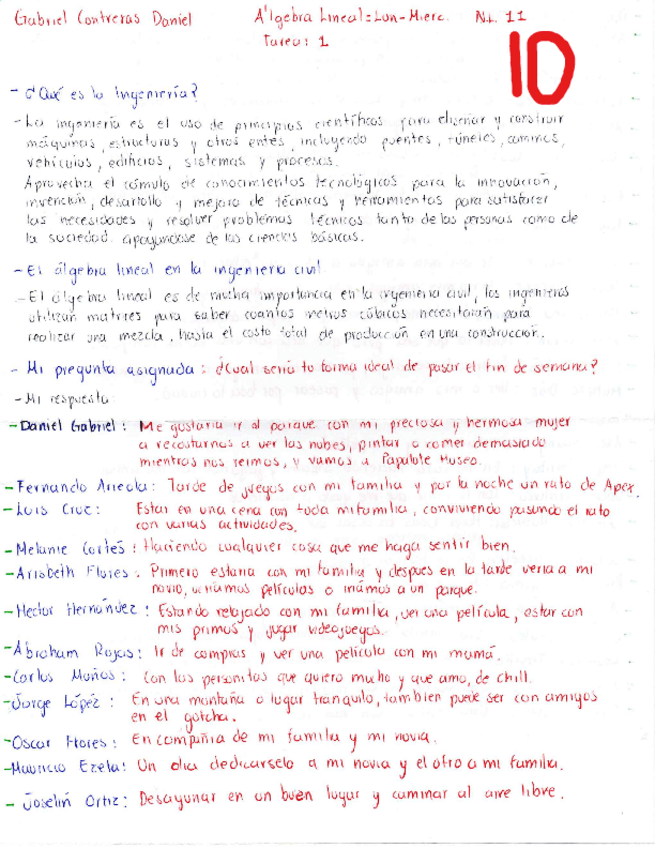 Gabriel Contreras Daniel Álgebra Lineal: Lun-Mierc. N.L. 11
Tarea: 1
10
- ¿Qué es la Ingeniería?
- La ingeniería es el uso de principios científicos para diseñar y construir
máquinas, estructuras y otros entes, incluyendo puentes, túneles, caminos,
vehículos, edificios, sistemas y procesos.
Aprovecha el cúmulo de conocimientos tecnológicos para la innovación,
invención, desarrollo y mejora de técnicas y herramientas para satisfacer
las necesidades y resolver problemas técnicos tanto de las personas como de
la sociedad. apoyandose de las ciencias básicas.
- El álgebra lineal en la ingenieria civil
- El álgebra lineal es de mucha importancia en la ingenieria civil, los ingenieros
utilizan matrices para saber cuantos metros cúbicos necesitarán para
realizar una mezcla, hasta el costo total de producción en una construcción.
- Mi pregunta asignada: ¿Cual seria tu forma ideal de pasar el fin de semana?
- Mi respuesta:
- Daniel Gabriel: Me gustaria ir al parque con mi preciosa y hermosa mujer
a recostarnos a ver las nubes, pintar o comer demasiado
mientras nos reimos, y vamos a Papalote Museo.
- Fernando Arreola: Tarde de juegos con mi familia y por la noche un rato de Apex.
- Luis Cruz: Estar en una cena con toda mi familia, conviviendo pasando el rato
con varias actividades.
- Melanie Cortés: Haciendo cualquier cosa que me haga sentir bien.
- Arisbeth Flores: Primero estaria con mi familia y despues en la tarde veria a mi
novio, veriamos películas o iriamos a un parque.
- Hector Hernández: Estando relajado con mi familia, ver una película, estar con
mis primos y jugar videojuegos.
- Abraham Rojas: Ir de compras y ver una película con mi mamá.
- Carlos Muños: Con las personitas que quiero mucho y que amo, de chill.
- Jorge López: En una montaña o lugar tranquilo, tambien puede ser con amigos
en el gotcha.
- Oscar Flores: En compañia de mi familia y mi novia.
- Mauricio Ezela: Un dia dedicarselo a mi novia y el otro a mi familia.
- Joselin Ortiz: Desayunar en un buen lugar y caminar al aire libre.